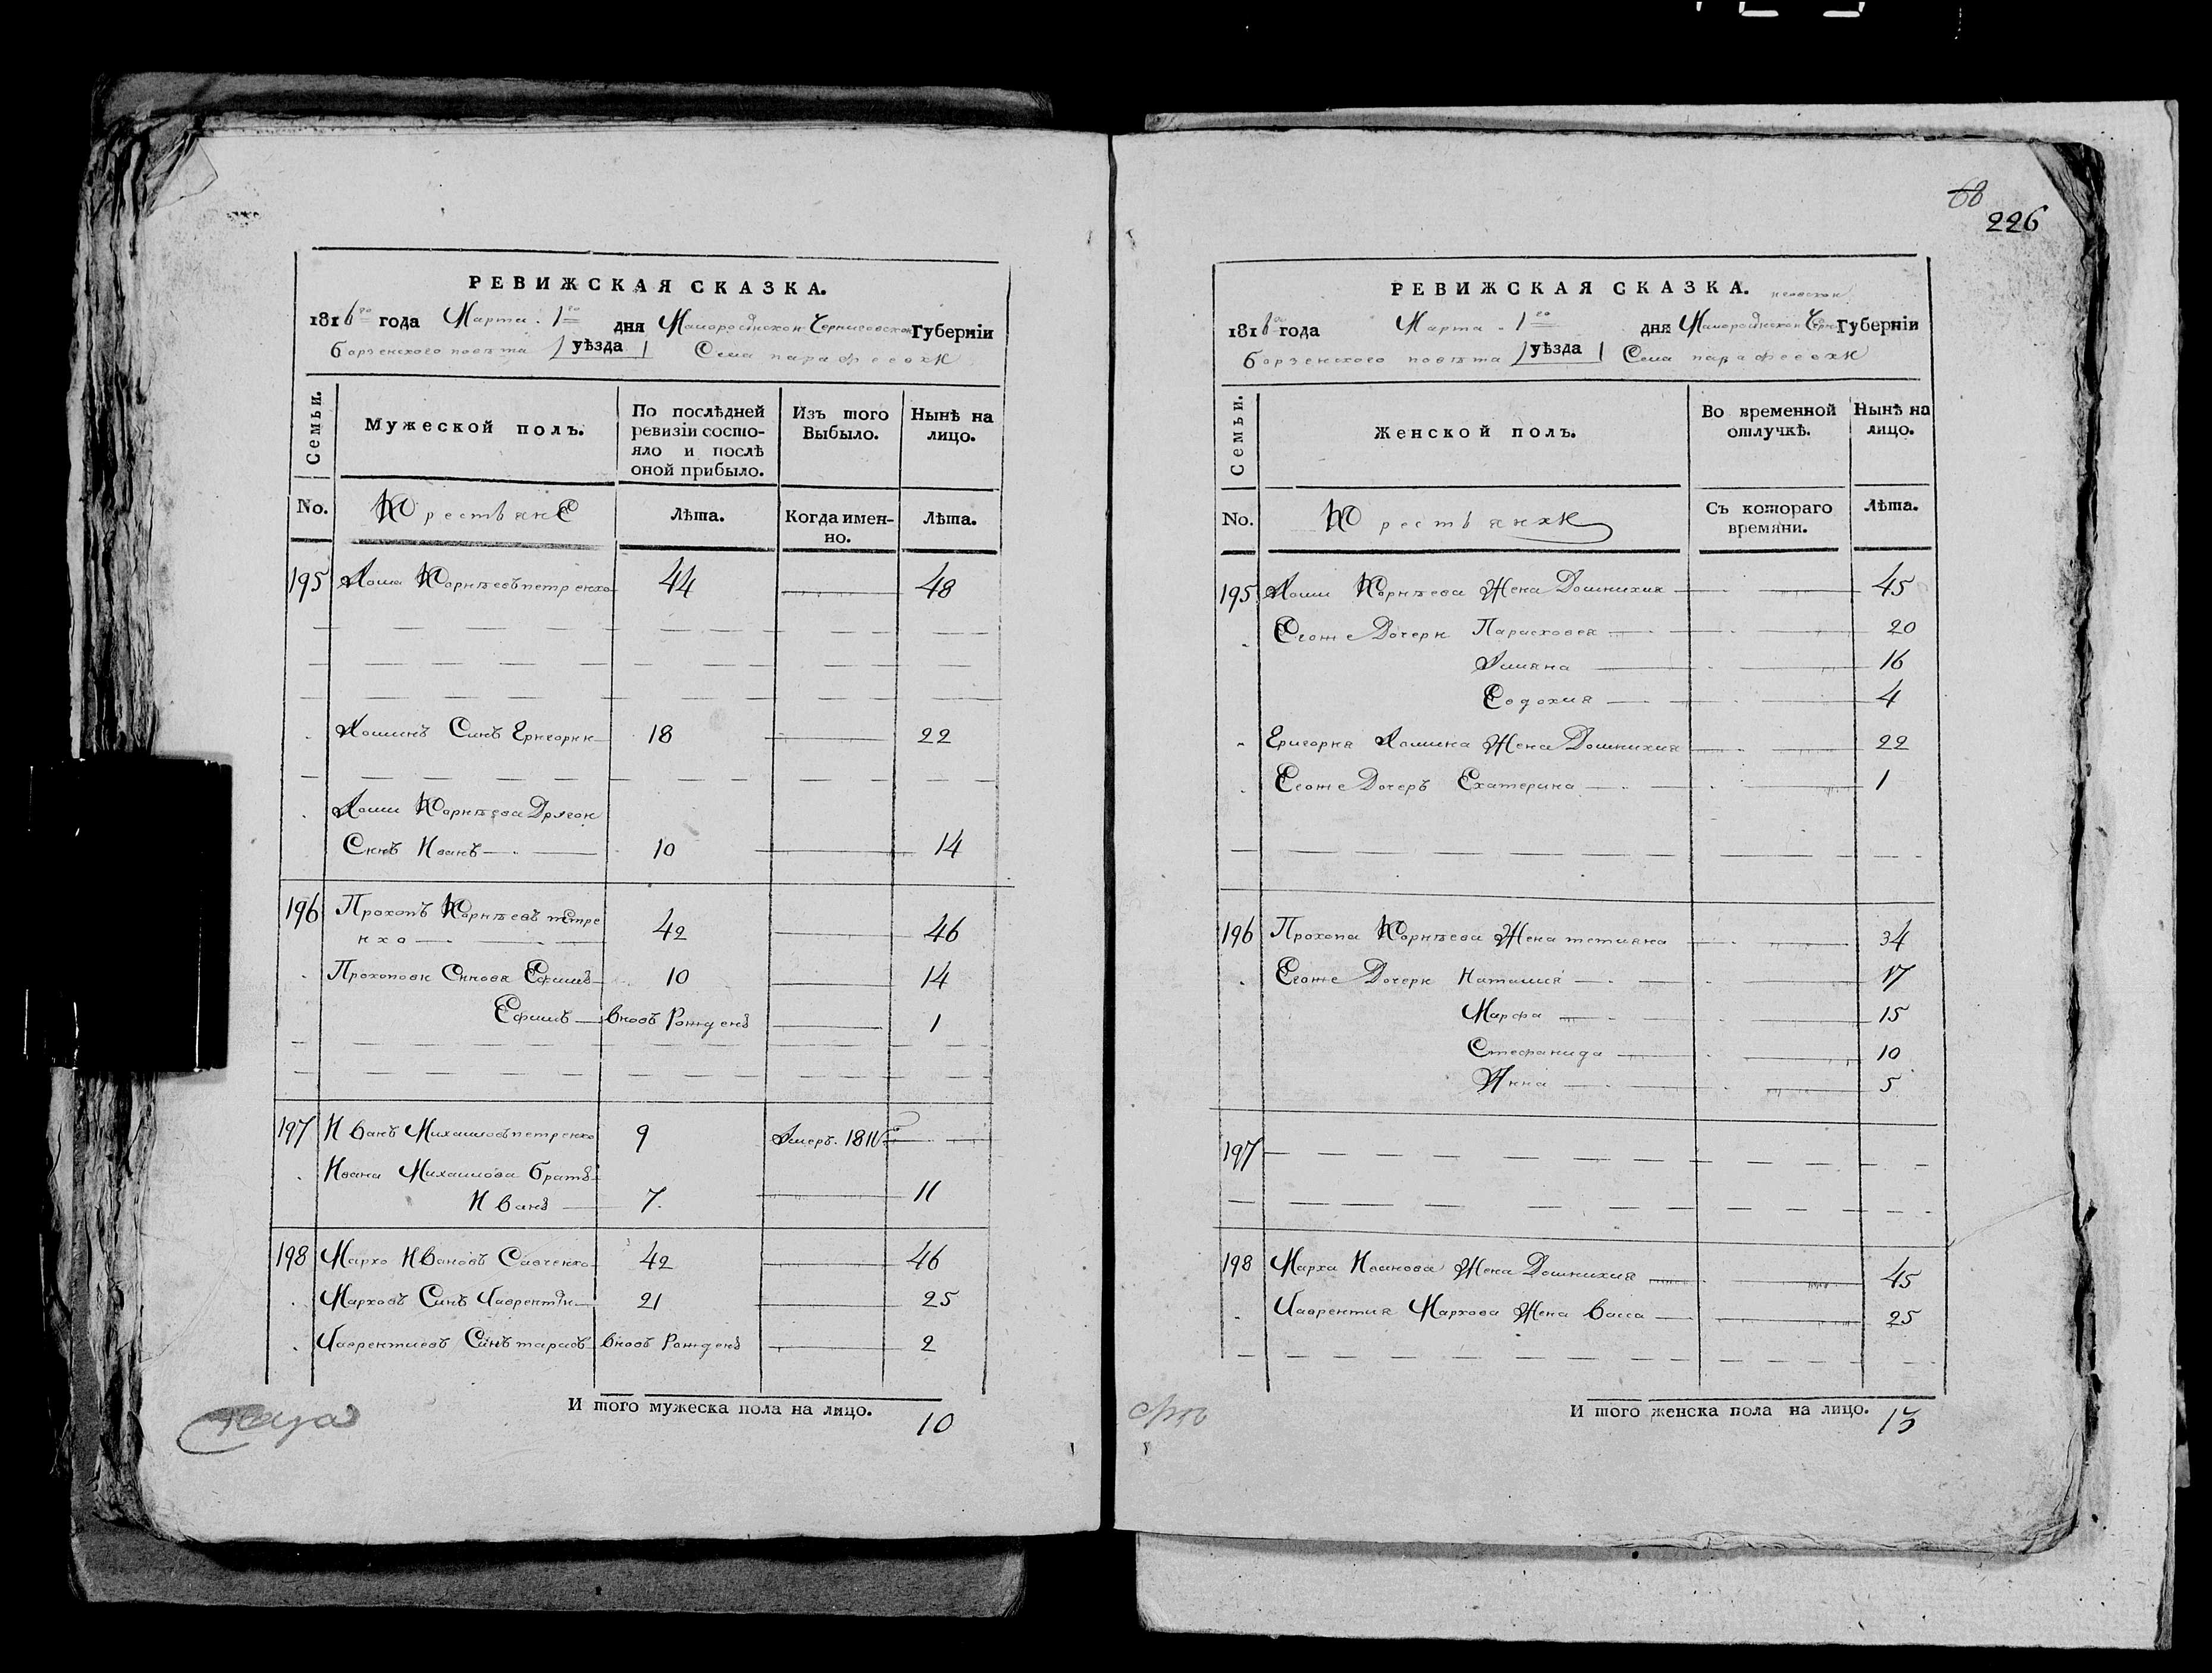 РЕВИЖСКАЯ СКАЗКА.
1816го года Марта 1го дня Малоросійской Черниговской Губерніи
борзенского повѣта уѣзда Села парафеевки
Семьи.
Мужеской полъ.
По послѣдней ревизіи состояло и послѣ оной прибыло.
Изъ того Выбыло.
Нынѣ на лицо.
No.
Крестьяне
Лѣта.
Когда имен-но.
Лѣта.
195 Хома Корнѣевъ петренко 44 48
Хоминъ Синъ Григорій 18 22
Хоми Корнѣева Другой
Синъ Иванъ 10 14
196 Прокопъ Корнѣевъ петре
нко 42 46
Прокопови Синова Ефимъ 10 14
Ефимъ вновь Рожденъ 1
197 Иванъ Михайловъ петренко 9 Умеръ 181
Ивана Михайлова братъ
Иванъ 7 11
198 Марко Ивановъ Савченко 42 46
Марковъ Синъ Лаврентій 21 25
Лаврентиевъ Синъ тарасъ вновь Рожденъ 2
И того мужеска пола на лицо. 10
68
226
РЕВИЖСКАЯ СКАЗКА.
1816го года Марта 1го дня Малоросійской Черниговской Губерніи
борзенского повѣта уѣзда Села парафеевки
Семьи.
Женской полъ.
Во временной отлучкѣ.
Нынѣ на лицо.
No.
Крестьянки
Съ котораго времяни.
Лѣта.
195 Хоми Корнѣева Жена Домникия 45
Егоже Дочери Парасковея 20
Уляна 16
Евдокия 4
Григория Хомина Жена Домникия 22
Егоже Дочеръ Екатерина 1
196 Прокопа Корнѣева Жена тетияна 34
Егоже Дочери Наталия 17
Марфа 15
Стефанида 10
Анна 5
197
198 Марка Иванова Жена Домникия 45
Лаврентия Маркова Жена Васса 25
И того женска пола на лицо. 13